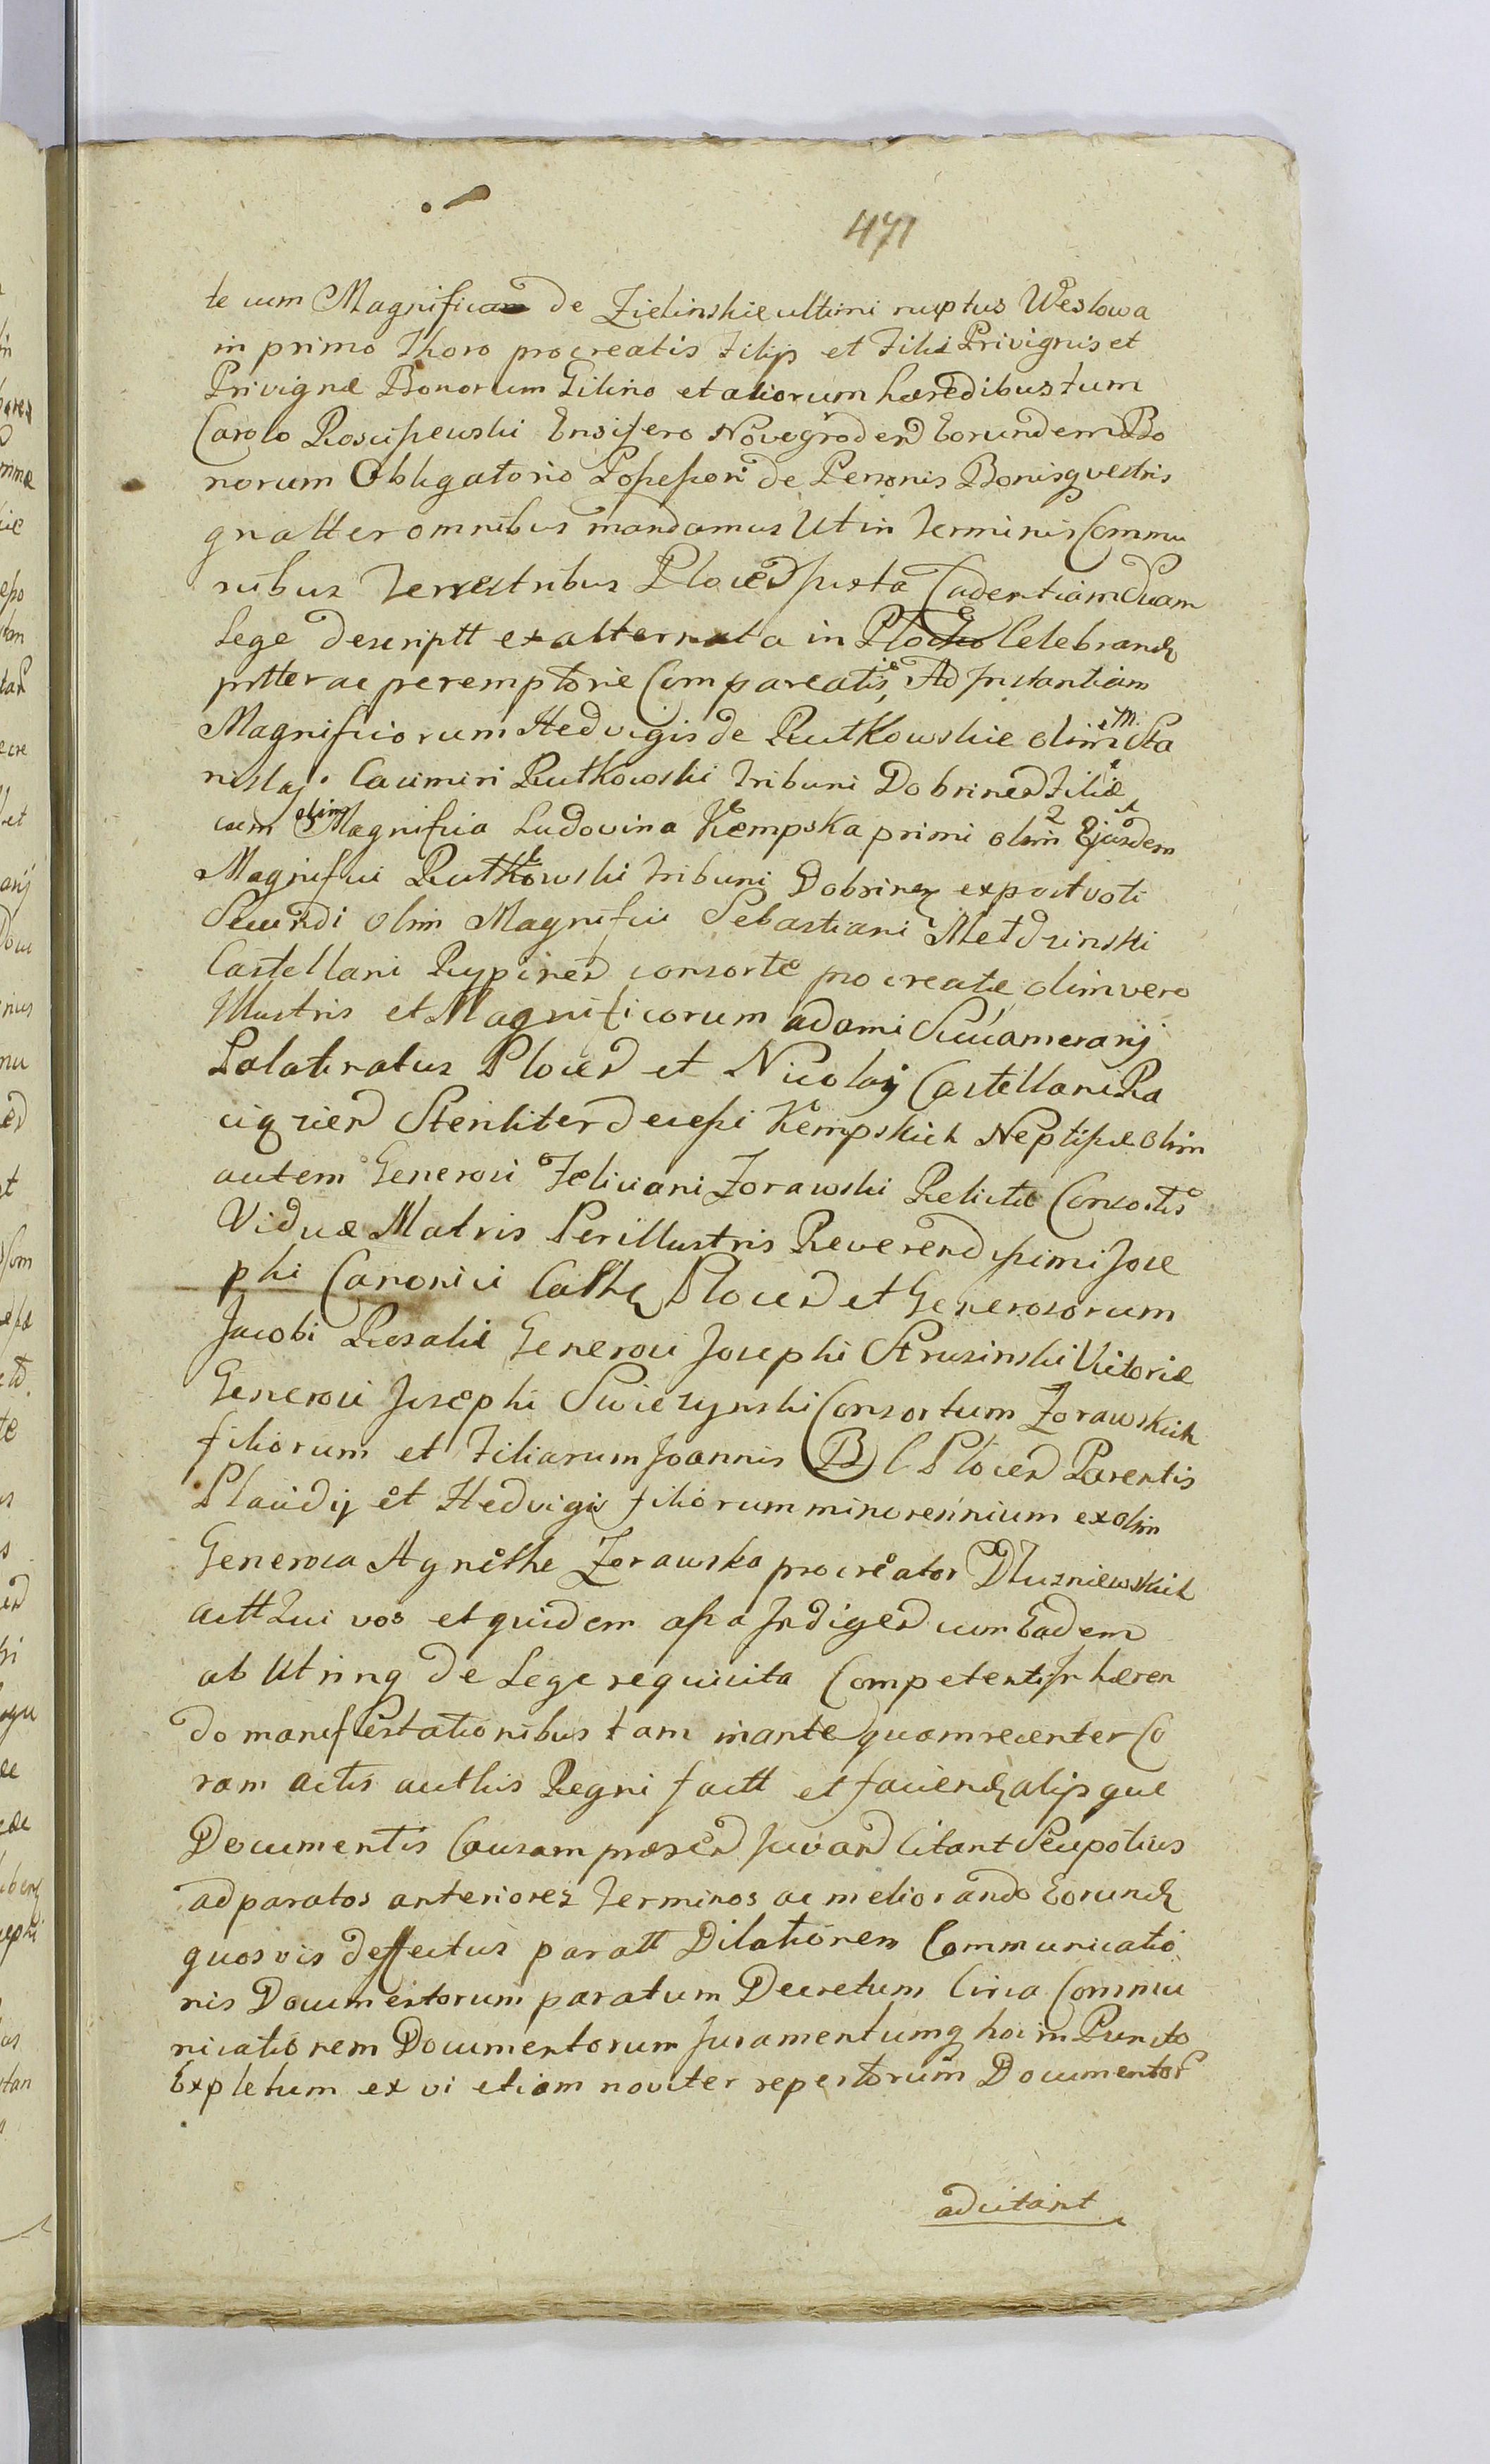 471
te cum Magnifica de Zielinskie ultimi nuptus Weslowa
in primo Thoro procreatis Filijs et Filia Privignis et
Privignæ Bonorum Gilino et aliorum hæredibus tum
Carolo Rosciszewski Ensifero Novogroden Eorundem Bo
norum Obligatorio Possessori de Personis Bonisq vestris
gnalter omnibus mandamus Ut in Terminis Commu
nibus Terrestribus Plocen juxta Cadentiam Suam
Lege descriptt ex alternata in Plocko Celebrand
pntter ac peremptorie Compareatis, Ad Instantiam
Magnificorum Hedvigis de Rutkowskie olim M. Sta
nislaj Casimiri Rutkowski Tribuni Dobrinen Filiæ
cum olim Magnifica Ludovina Kempska primi olim Ejusdem
Magnifici Rutkowski Tribuni Dobrinen expost voti
Secundi olim Magnifici Sebastiani Metdzinski
Castellani Rypinen consorte procreatæ olim vero
Illustris et Magnificorum adami Succamerarij
Palatinatus Plocen et Nicolaj Castellani Ra
ciązien Steriliter decessi Kempskich Neptissæ olim
autem Generosi Feliciani Zorawski Relictæ Consortis
Viduæ Matris Perillustris Reverendissimi Jose
phi Canonici Cathe Plocen et Generosorum
Jacobi Rosaliæ Generosi Josephi Struzinski Victoriæ
Generosi Josephi Swiezynski Consortum Zorawskich
filiorum et Filiarum Joannis B C Plocen Parentis
Placidij et Hedvigis filiorum minorennium ex olim
Generosa Agnethe Zorawska procreator Dluzniewskich
actt Qui vos et quidem assa Indigen cum Eadem
ab Utrinq de Lege requisita Competenti Inhæren
do manifestationibus tam inante quam recenter Co
ram actis authis Regni factt et faciend alijsque
Documentis Causam præsen juvan Citant Seu potius
ad paratos anteriores Terminos ac meliorando Eorund
quosvis deffectus paratt Dilationem Communicatio
nis Documentorum paratum Decretum Circa Commu
nicationem Documentorum Juramentumq hoc in Puncto
Expletum ex vi etiam noviter repertorum Documentor
adcitant